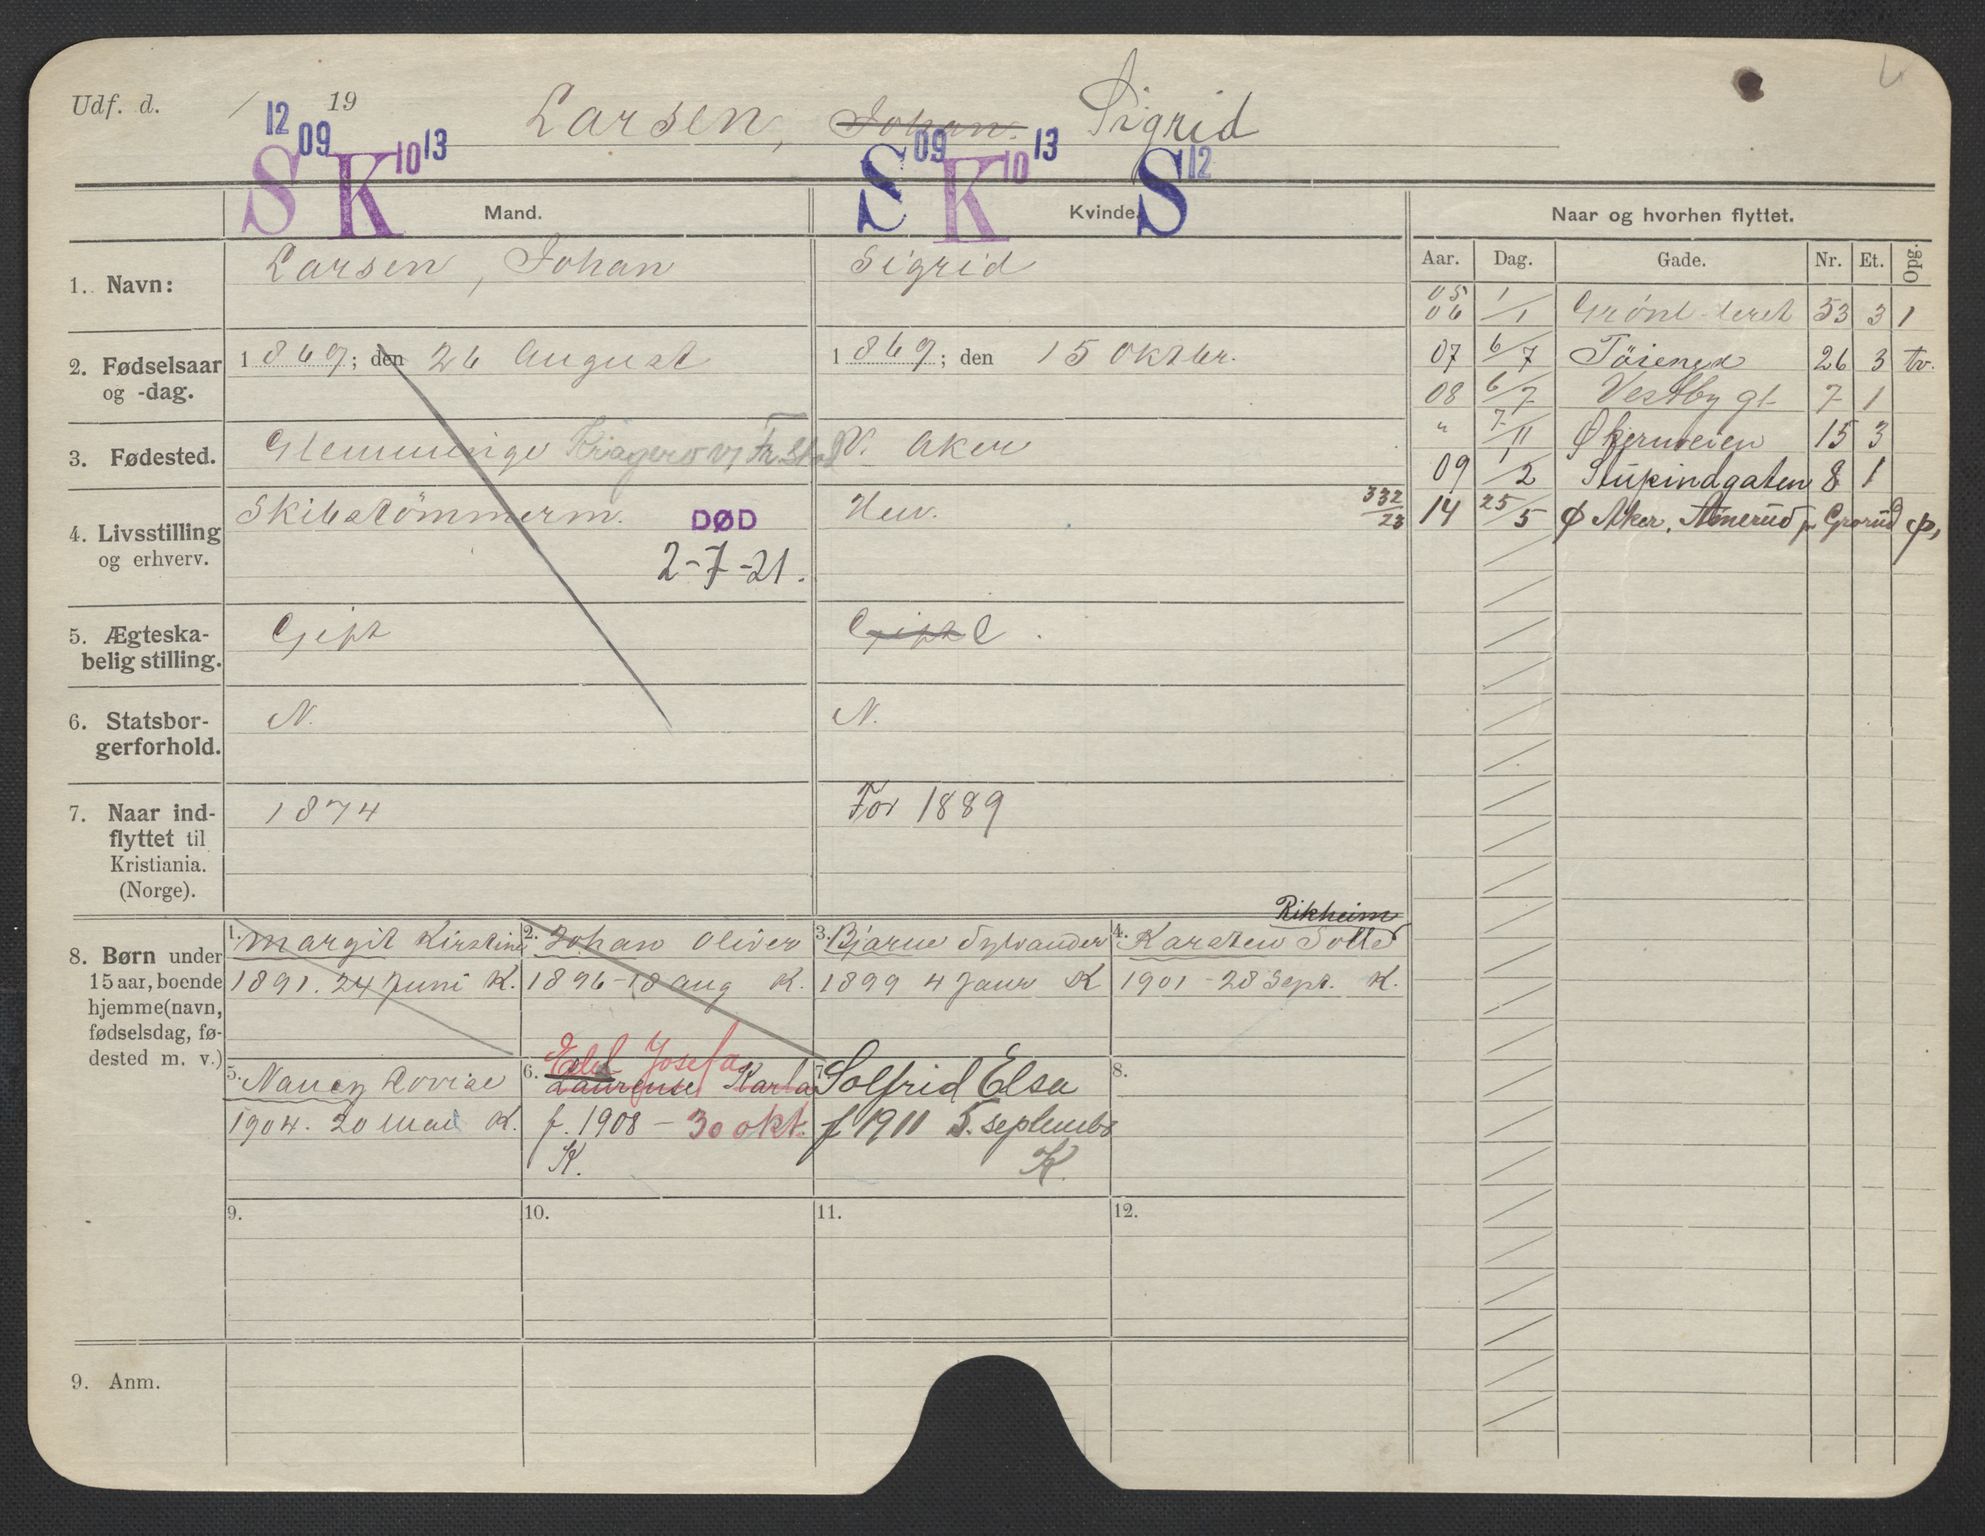 Udf. d. / 19 Larsen, Johan. Sigrid
12 09 10 13 09 10 13 12
S K S K S
Mand. Kvinde. Naar og hvorhen flyttet.
Aar. Dag. Gade. Nr. Et. Opg.
1. Navn: Larsen, Johan Sigrid
2. Fødselsaar og -dag. 1869; den 26 August 1869; den 15 oktbr.
3. Fødested. Glemminge Kragerø V. Aker
4. Livsstilling og erhverv. Skibstömmerm. Hus.
DØD
2-7-21.
332/23
5. Ægteska-
belig stilling. Gift Gift E
6. Statsbor-
gerforhold. N. N.
7. Naar ind-
flyttet til
Kristiania.
(Norge). 1874 Før 1889
05
06 1/1 53 3 1
07 6/7 Töiengt 26 3 tv.
08 6/7 Vestby gt 7 1
" 7/11 Økernveien 15 3
09 1/2 8 1
14 25/5 Ø Aker, p Grorud
8. Børn under
15 aar, boende
hjemme (navn,
fødselsdag, fø-
dested m. v.)
1. Margit Kirstine
1891. 24 Juni K.
2. Johan Oliver
1896-18 aug K.
3. Bjarne Sylvander
1899 4 Janr K
Rikheim
4. Karsten
1901 - 28 Sept. K.
5. Nancy Lovise
1904. 20 Mai K.
6. Edel Josefa
Laurense Karla
f. 1908 - 30 okt.
K.
7. Solfrid Elsa
f 1911 5. septembr
K.
8.
9. 10. 11. 12.
9. Anm.